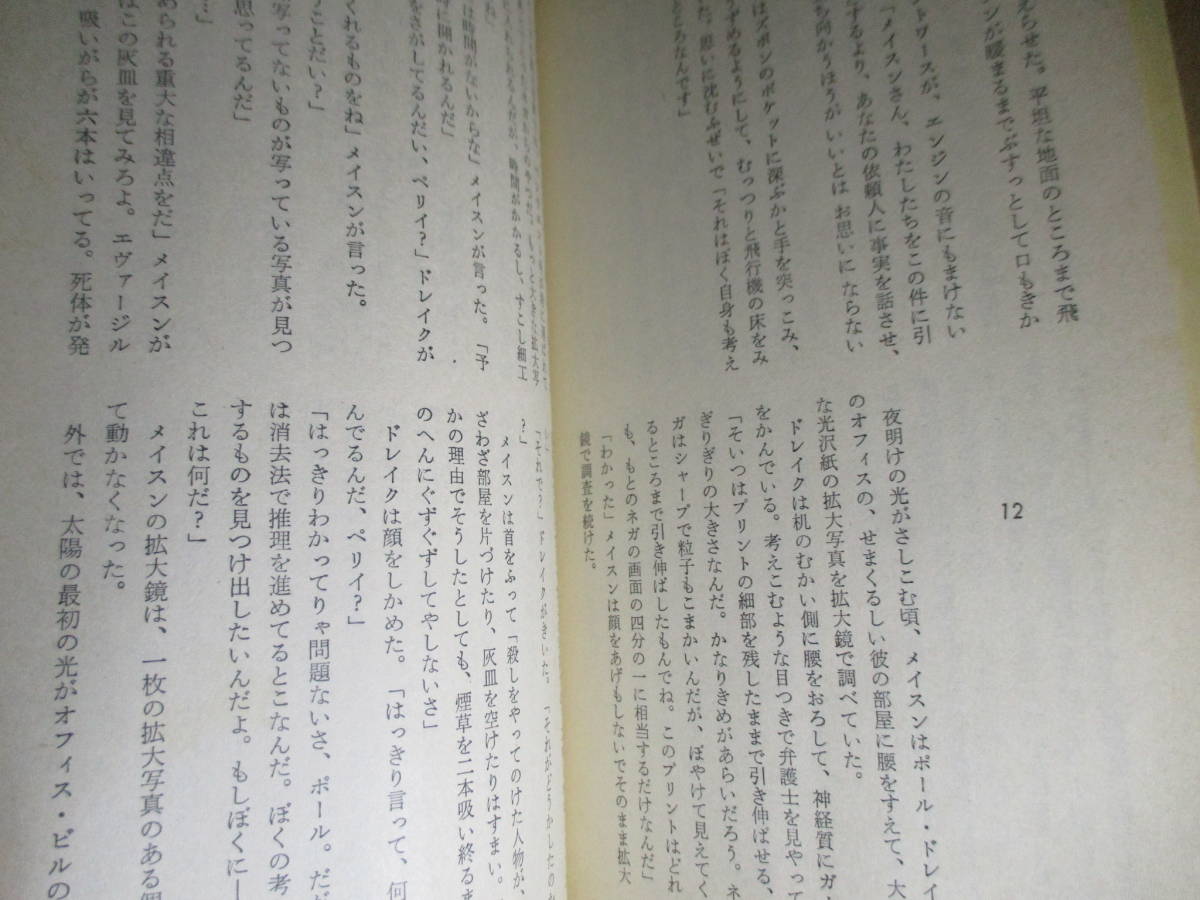 えらせた。平坦な地面のところまで飛
ンが腰まるまでぶすっとして口もきか
トワースが、エンジンの音にもまけない
「メイスンさん、わたしたちをこの件に引
とするより、あなたの依頼人に事実を話させ、
も向かうほうが いいとは お思いに ならない
はズボンのポケットに深ぶかと手を突っこみ、
うずめるようにして、むっつりと飛行機の床をみ
た。思いに沈むふぜいで「それはぼく自身も考え
ところなんです」
12
夜明けの光がさしこむ頃、メイスンはポール・ドレイ
のオフィスの、せまくるしい彼の部屋に腰をすえて、大
な光沢紙の拡大写真を拡大鏡で調べていた。
ドレイクは机のむかい側に腰をおろして、神経質にガ
をかんでいる。考えこむような目つきで弁護士を見やって
「そいつはプリントの細部を残したままで引き伸ばせる、
ぎりぎりの大きさなんだ。かなりきめがあらいだろう。ネ
ガはシャープで粒子もこまかいんだが、ぼやけて見えてく
るところまで引き伸ばしたもんでね。このプリントはどれ
も、もとのネガの画面の四分の一に相当するだけなんだ」
「わかった」メイスンは顔をあげもしないでそのまま拡大
鏡で調査を続けた。
れられるんだが、時間がかかるし、すこし細工
は時間がないからな」メイスンが言った。「予
に開かれるんだ」
をさがしてるんだい、ペリイ?」ドレイクが
くれるものをね」メイスンが言った。
うことだい?」
写ってないものが写っている写真が見つ
思ってるんだ」
…」
あられる重大な相違点をだ」メイスンが
はこの灰皿を見てみろよ。エヴァージル
吸いがらが六本はいってる。死体が発
「それで?」ドレイクがきいた。「それがどうかしたのか
?」
メイスンは首をふって「殺しをやってのけた人物が、
ざわざ部屋を片づけたり、灰皿を空けたりはすまい。
かの理由でそうしたとしても、煙草を二本吸い終るま
のへんにぐずぐずしてやしないさ」
ドレイクは顔をしかめた。「はっきり言って、何
んでるんだ、ペリイ?」
「はっきりわかってりゃ問題ないさ、ポール。だが
は消去法で推理を進めてるとこなんだ。ぼくの考
するものを見つけ出したいんだよ。もしぼくに—
これは何だ?」
メイスンの拡大鏡は、一枚の拡大写真のある個
て動かなくなった。
外では、太陽の最初の光がオフィス・ビルの